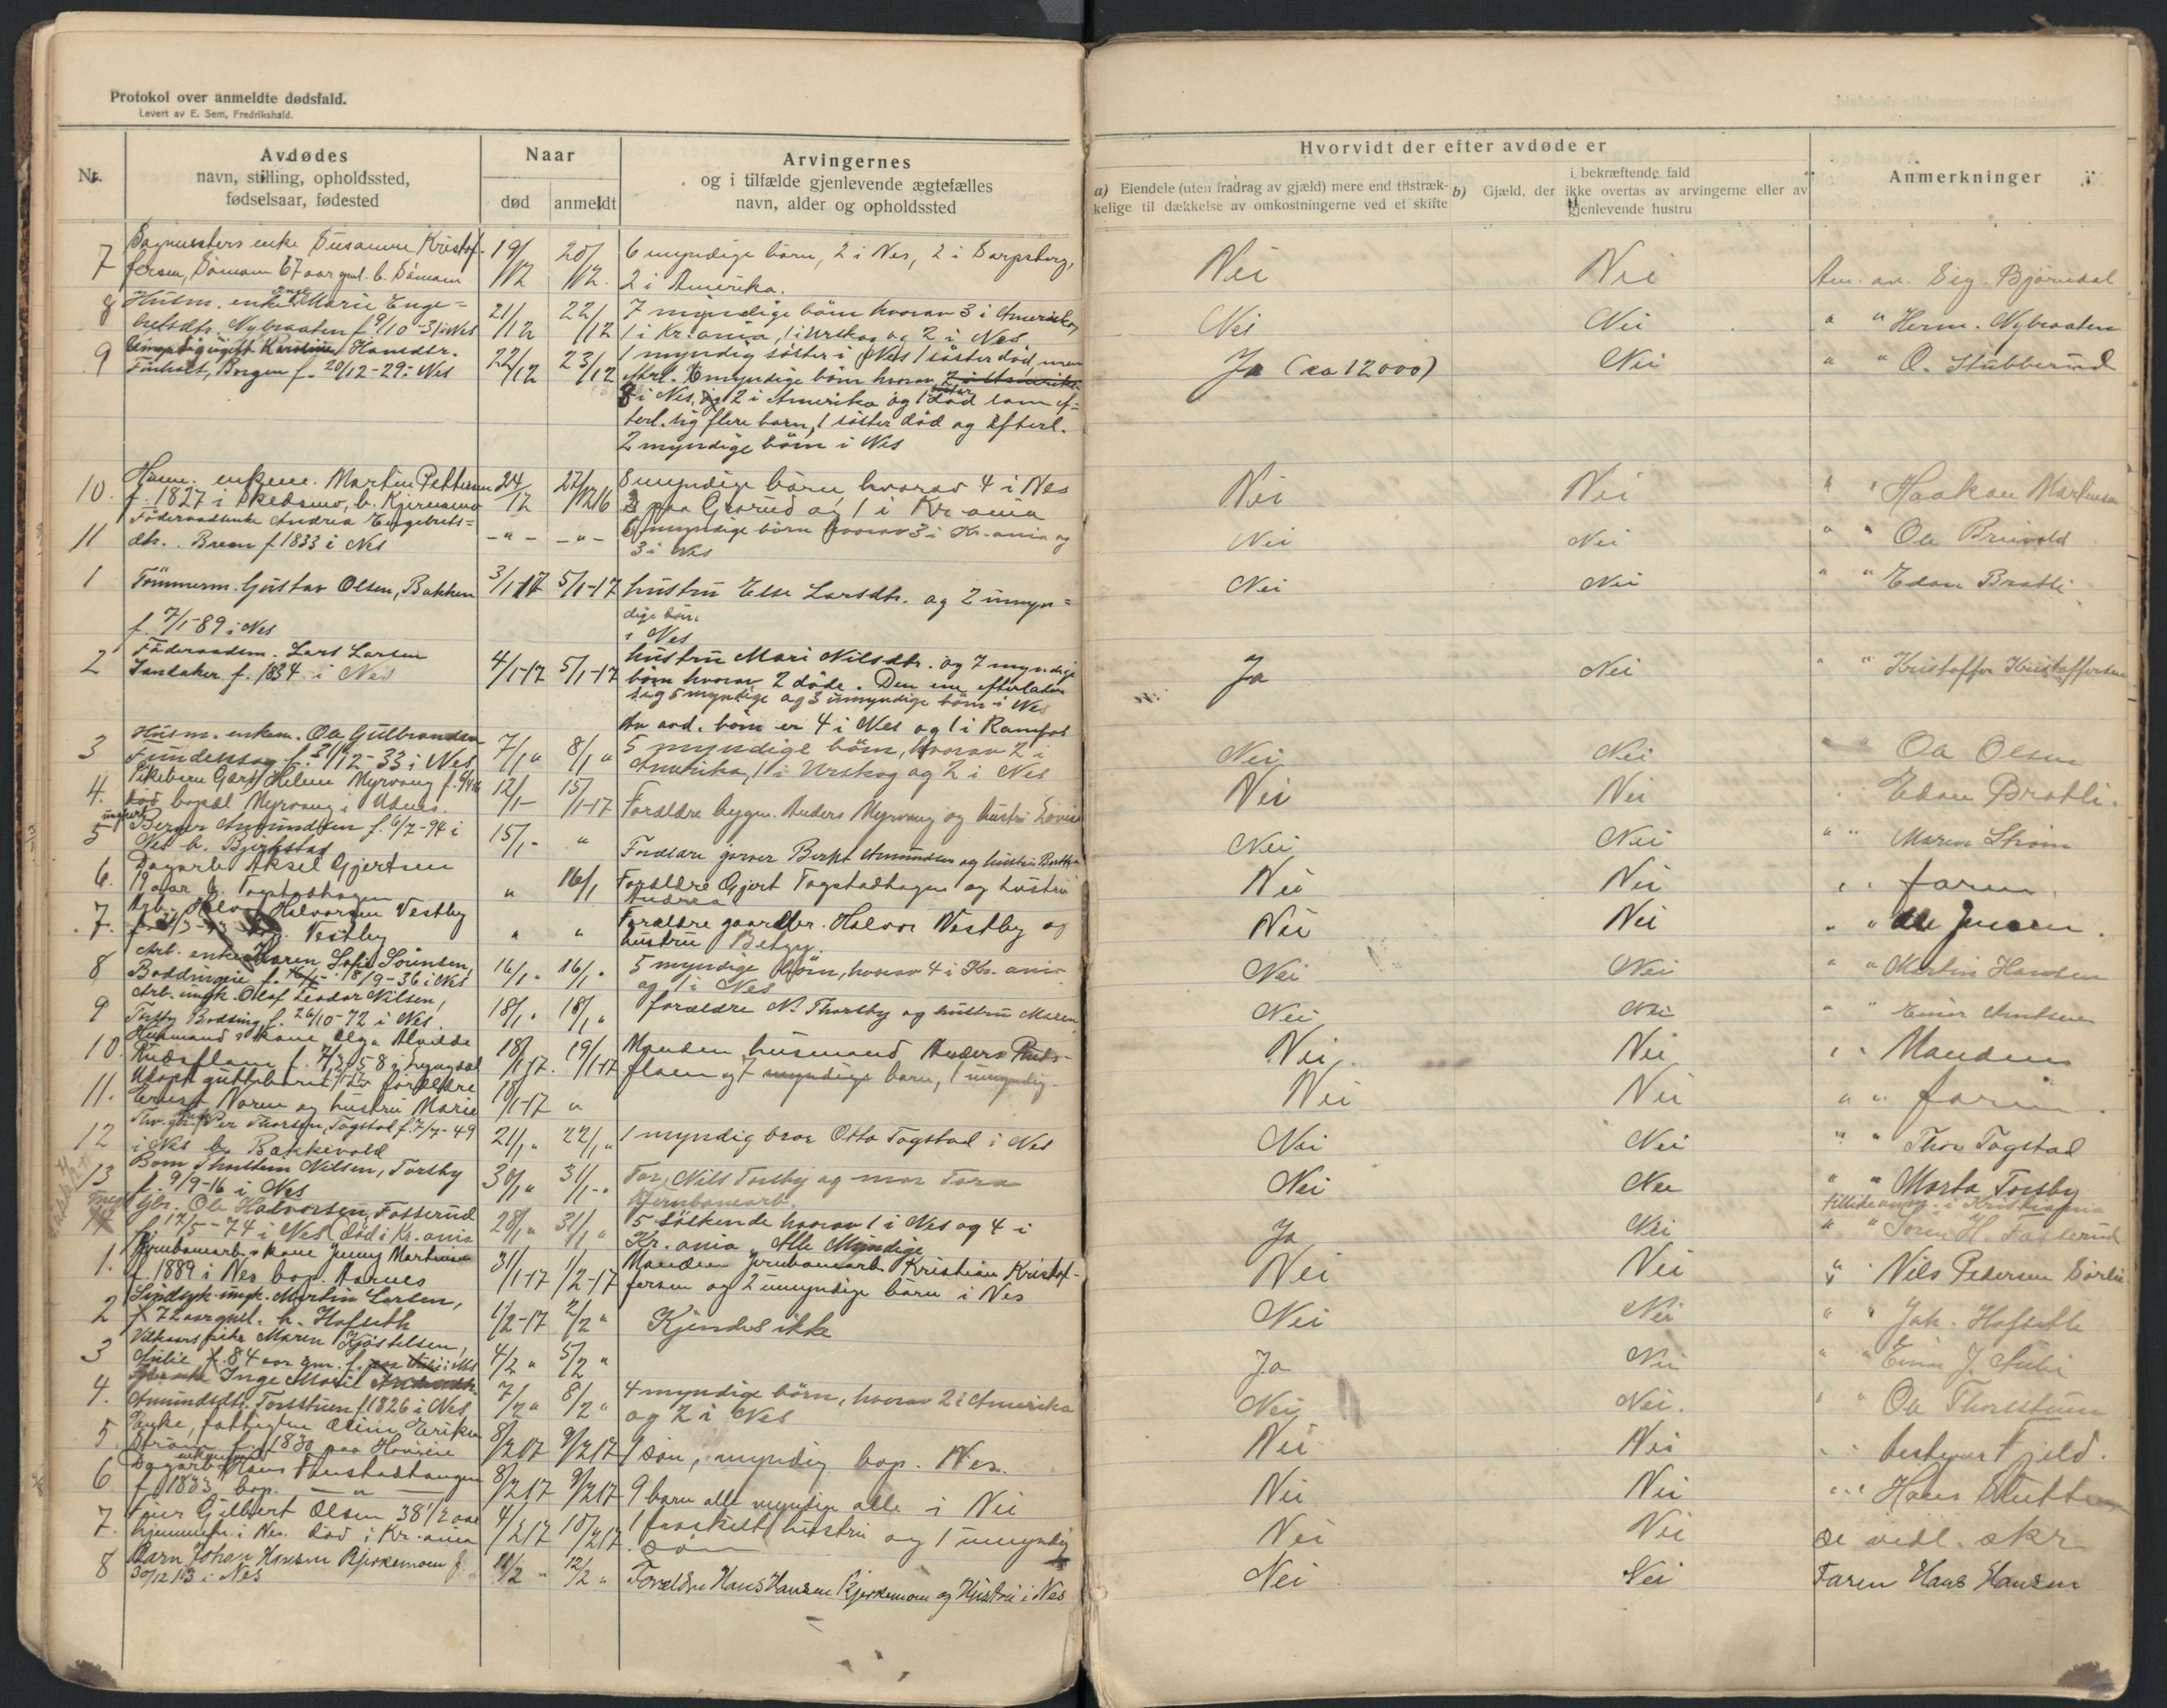 Protokol over anmeldte dødsfald.
Levert av E. Sem, Fredrikshald.
Nr.
Avdødes
navn, stilling, opholdssted,
fødselsaar, fødested
Naar
død
anmeldt
Arvingernes
og i tilfælde gjenlevende ægtefælles
navn, alder og opholdssted
Hvorvidt der efter avdøde er
a) Eiendele (uten fradrag av gjæld) mere end tilstræk-
kelige til dækkelse av omkostningerne ved et skifte
i bekræftende fald
b) Gjæld, der ikke overtas av arvingerne eller av
gjenlevende hustru
Anmerkninger
7 enke Susanne Kristof- 19/12 20/12. 6 myndige børn, 2 i Nes, 2 i Sarpsborg, Nei Nei Am. av. Sig. Bjørndal
fersen, 67 aar gml. b. 2 i Amerika.
8 Husm. enke Marie Enge= 21/12 22/12 7 myndige børn hvorav 3 i Amerika, Nei Nei " " Herm. Nybraaten
bretsdtr. Nybraaten f. 9/10-31 i Nes 1 i Kr.ania, 1 i Urskog og 2 i Nes.
9 Hansdtr. 22/12 23/12 1 myndig søster i Nes 1 søster død, men Ja (ca 12000) Nei " " O. Stubberud
Borgen f. 20/12-29 i Nes myndige børn hvorav 2 i Amerika
i Nes, og 2 i Amerika og 1 død som ef=
terl. sig flere barn, 1 søster død og efterl.
2 myndige børn i Nes
10. enkem. Martin Pettersen 24/12 27/12 16 8 myndige børn hvorav 4 i Nes Nei Nei " " Haakon Martinsen
f. 1827 i Skedsmo, b. Kjernsmo 3 paa Grorud og 1 i Kr-ania
11 Føderaadsenke Andrea Engebrets= -"- -"- 6 myndige børn hvorav 3 i Kr.-ania og Nei Nei " " Ole
dtr. Breen f 1833 i Nes 3 i Nes
1 Tømmerm. Gustav Olsen, Bakken 3/1-17 5/1-17 hustru Else Larsdtr. og 2 umyn= Nei Nei " " Edon Bratli
dige børn
f. 7/1-89 i Nes i Nes
2 Føderaadsm. Lars Larsen 4/1-17 5/1-17 hustru Mari Nilsdtr. og 7 myndige Ja Nei " " Kristoffer Kristoffersen
f. 1834 i Nes børn hvorav 2 døde. Den ene efterlater
sig 5 myndige og 3 umyndige børn i Nes
Av børn er 4 i Nes og 1 i Ramfos
3 Husm. enkem. Ole Gulbrandsen 7/1 " 8/1 " 5 myndige børn, hvorav 2 i Nei Nei " " Ole Olsen
f. 31/12-33 i Nes Amerika, 1 i Urskog og 2 i Nes
4. Pikebarn Helene Myrvang 12/1- 15/1-17 Forældre bygm. Anders Myrvang og hustru Lovise Nei Nei Edon Bratli.
død bopæl Myrvang i Udnes.
5 Berger Amundsen f. 6/7-94 i 15/1- " Forældre garver Bernt Amundsen og hustru Nei Nei " " Maren Strøm
Nes b.
6. Dagarb. Aksel Gjertsen " 16/1 Forældre Gjert Togstadhagen og hustru Nei Nei " " faren.
19 aar b. Togstadhagen Andrea
7. Arb. Halvorsen Vestby " " Forældre gaardbr. Halvor Vestby og Nei Nei " " Ole Jensen.
Vestby hustru Betzy.
8 Arb. enke Karen Sofie Sørensen, 16/1. 16/1. 5 myndige børn, hvorav 4 i Kr. ania Nei Nei " " Martin Hansen
18/9-36 i Nes og 1 i Nes
9 Arb. ungk. Olaf Teodor Nilsen, 18/1. 18/1 " forældre N. Thorsby og hustru Maren Nei Nei " "
Torsby Bodding f. 26/10-72 i Nes.
10. Husmands kone Olga 18/1 17. 19/1-17 Manden husmand Anders Ruds- Nei Nei " " Manden
Rudsfloen f. floen og 7 myndige barn, 1 umyndig.
11. Udøpt guttebarn forældre 18/1-17 " Nei Nei " " faren.
Ernst Noren og hustru Marie
12 Per Thorsen, Togstad f. 7/7-49 21/1 " 22/1 " 1 myndig bror Otto Togstad i Nes Nei Nei " " Thor Togstad
i Nes b. Bakkevold
13 Barn Thorstein Nilsen, Torsby 30/1 " 31/1-" Far, Nils Torsby og mor Tora Nei Nei " " Marta Torsby
f. 9/9-16 i Nes Jernbanearb.
Gbr. Ole Halvorsen, Fosserud 28/1 " 31/1 " 5 søskende hvorav 1 i Nes og 4 i Ja Nei " " Søren H. Fosserud
f. 17/5-74 i Nes (død i Kr. ania Kr. ania. Alle Myndige
1. Jernbanearb.s kone Jenny Martinsen 31/1-17 1/2-17 Manden Jernbanearb. Kristian Kristof- Nei Nei " Nils Pedersen Sørlie
f. 1889 i Nes bop. Aarnes fersen og 2 umyndige barn i Nes
2 Sindssyk ungk. Martin Larsen, 1/2-17 2/2 " Kjendes ikke Nei Nei " " Joh. Hofseth
72 aar gml. b. Hofseth
3 Vilkaarspike Maren Kjøstelsen, 4/2 " 5/2 " Ja Nei " " Einar J. Aulie
Aulie 84 aar gm. f.
4. Inge Marie 7/2 " 8/2 " 4 myndige børn, hvorav 2 i Amerika Nei Nei. " " Ole Thorsstuen
Amundsdtr. Torsstuen f. 1826 i Nes og 2 i Nes
5. Enke, fattiglem Oline Eriksen 8/2 17 9/2 17 1 søn, myndig bop. Nes. Nei Nei " " bestyrer Fjeld.
Strøm f. 1830 paa
6. Dagarb. Hans 8/2 17 9/2 17 9 barn alle myndige alle i Nei Nei Nei " " Hans
f. 1833 bop. —"—
7. Gilbert Olsen 38 1/2 aar 4/2 17 10/2 17 1 fraskilt hustru og 1 umyndig Nei Nei Se vedl. skr
hjemmeh. i Nes. død i Kr.ania søn
8 Barn Johan Hansen Bjerkemoen f. 11/2 " 12/2 " Forældre Hans Hansen Bjerkemoen og Hustru i Nes Nei Nei Faren Hans Hansen
30/12 13 i Nes